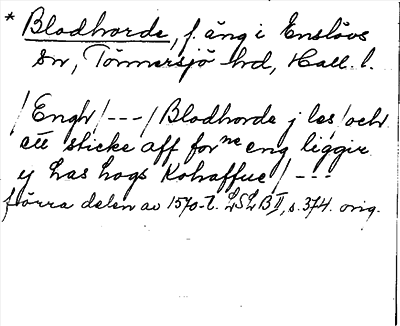 * Blodhorde, f. äng i Enslövs
sn, Tönnersjö hd, Hall. l.
/Engh/---/ Blodhorde j les/och
ett sticke aff forne eng liggir
y Las Logs Kohaffue/---
förra delen av 1570-t. LSLB II, s. 374. orig.